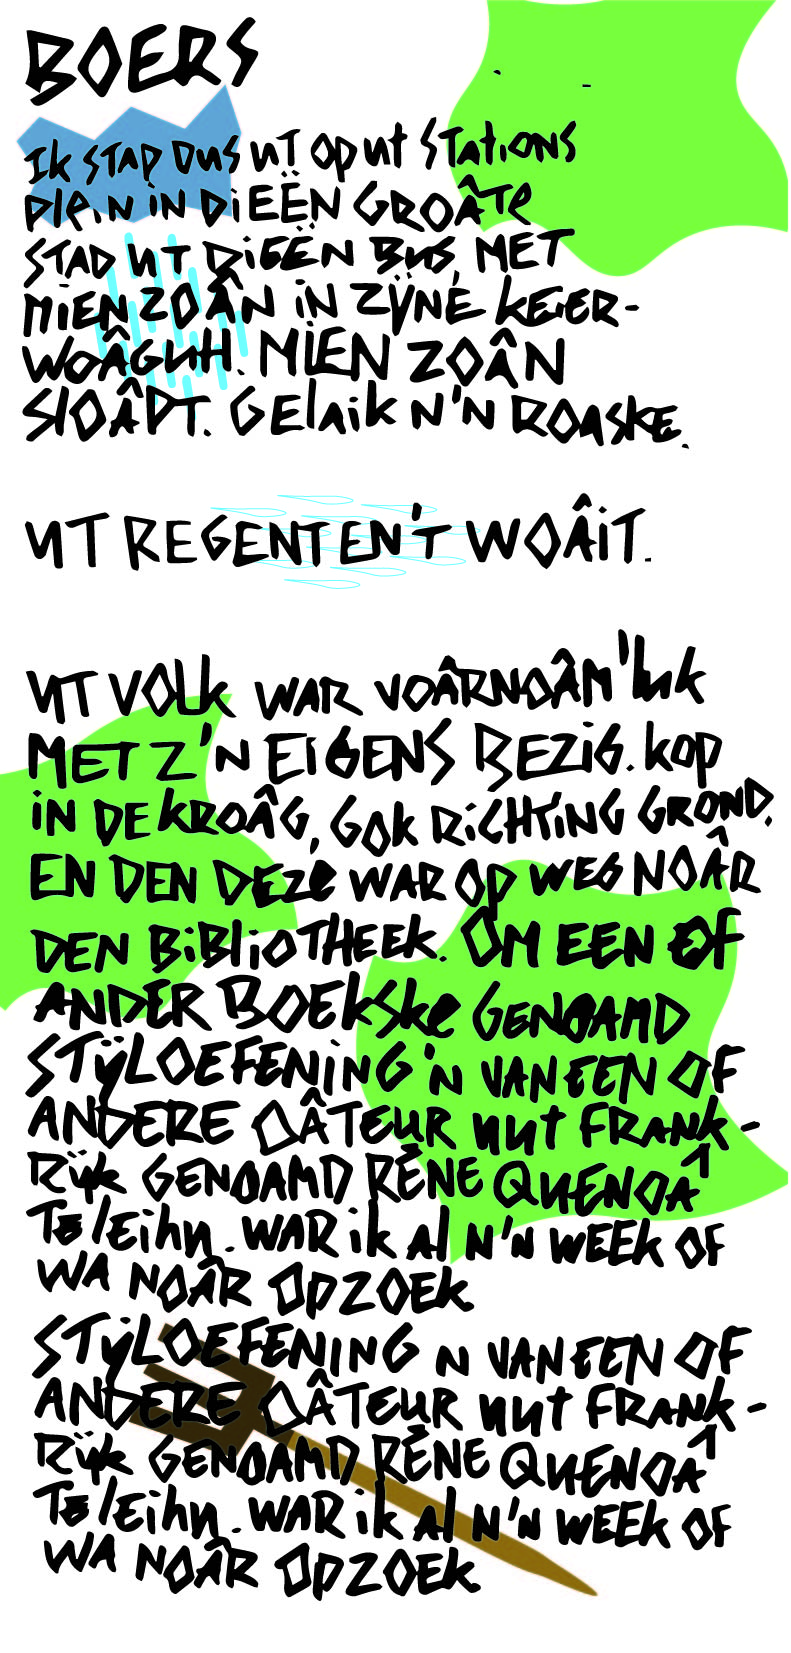 BOERS
Ik STAP DUS UT OP UT STATIONS
PLEIN IN DIEËN GROÂTE
STAD UT DIEËN BUS, MET
MIEN ZOÂN IN ZŸNE KEIER-
WOÂGUH. MIEN ZOÂN
SLOÂPT. GELAIK N'N ROASKE.
UT REGENT EN'T WOÂIT.
UT VOLK WAR VOÂRNOÂM'LUK
MET Z'N EIGENS BEZIG. KOP
IN DE KROÂG, GOK RICHTING GROND.
EN DEN DEZE WAR OP WEG NOÂR
DEN BIBLIOTHEEK. OM EEN OF
ANDER BOEKSKE GENOAMD
STŸLOEFENING'N VAN EEN OF
ANDERE OÂTEUR UUT FRANK-
RŸK GENOAMD RÉNE QUENOÂ
TE LEIHN. WAR IK AL N'N WEEK OF
WA NOÂR OPZOEK.
STŸLOEFENING N VAN EEN OF
ANDERE OÂTEUR UUT FRANK-
RŸK GENOAMD RÉNE QUENOÂ
TE LEIHN. WAR IK AL N'N WEEK OF
WA NOÂR OPZOEK.